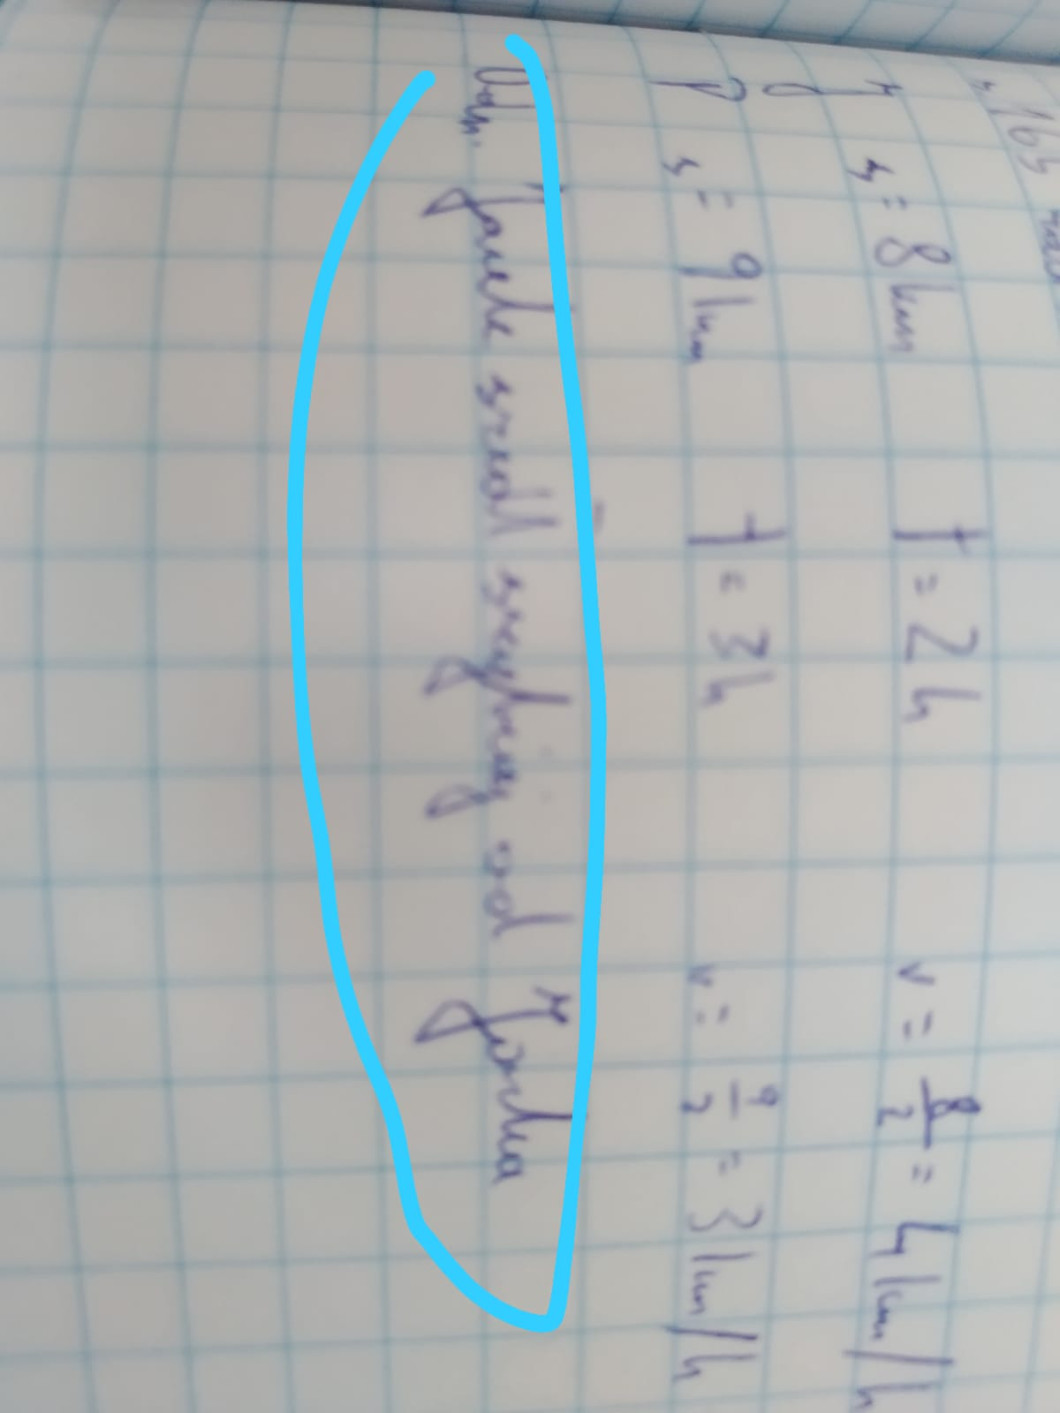 163
s = 8 km t = 2 h v = 8/2 = 4 km/h
s = 9 km t = 3 h v = 9/3 = 3 km/h
Odp. Jacek szedł szybciej od